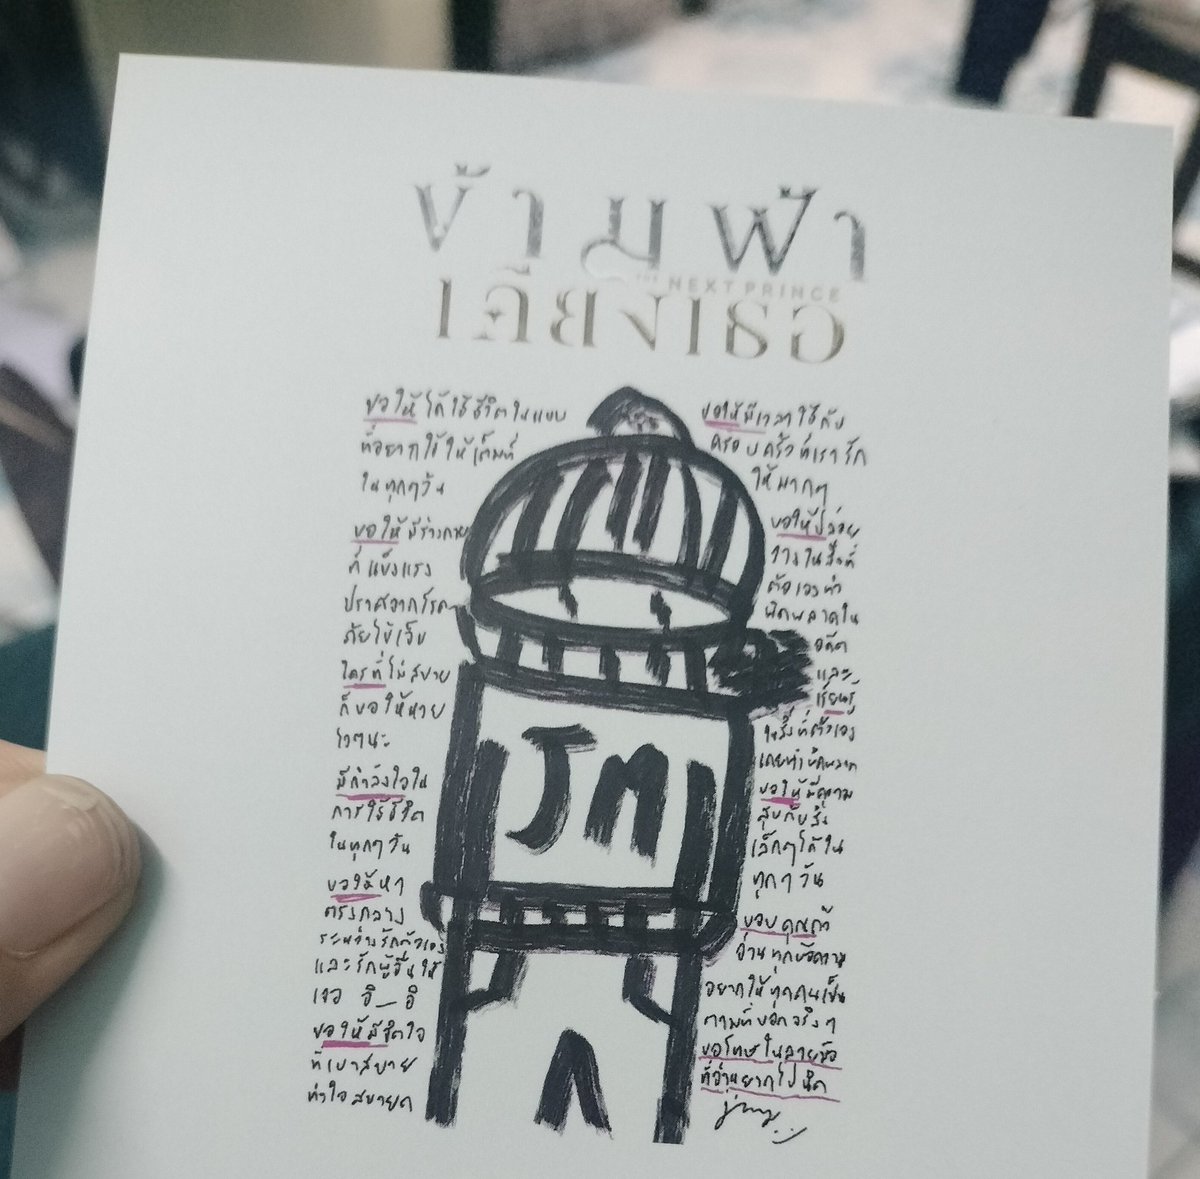 ข้ามฟ้า
THE NEXT PRINCE
เคียงเธอ
ขอให้ได้ใช้ชีวิตในแบบ
ที่อยากใช้ให้เต็มที่
ในทุกๆวัน
ขอให้มีร่างกาย
ที่แข็งแรง
ปราศจากโรค
ภัยไข้เจ็บ
ใครที่ไม่สบาย
ก็ขอให้หาย
ไวๆนะ
มีกำลังใจใน
การใช้ชีวิต
ในทุกๆวัน
ขอให้หา
ตรงกลาง
ระหว่างรักตัวเอง
และรักผู้อื่นให้
เจอ อิ_อิ
ขอให้มีจิตใจ
ที่เบาสบาย
ทำใจสบายๆ
JM
ขอให้มีเวลาใช้กับ
ครอบครัวที่เรารัก
ให้มากๆ
ขอให้ปล่อย
วางในสิ่งที่
ตัวเองทำ
ผิดพลาดใน
อดีต
และ
เรียนรู้
ในสิ่งที่ตัวเอง
เคยทำผิดพลาด
ขอให้มีความ
สุขกับสิ่ง
เล็กๆได้ใน
ทุกๆวัน
ขอบคุณที่
อ่านทุกข้อความ
อยากให้ทุกคนเป็น
ตามที่บอกจริงๆ
ขอโทษในลายมือ
ที่อ่านยากไปนิด